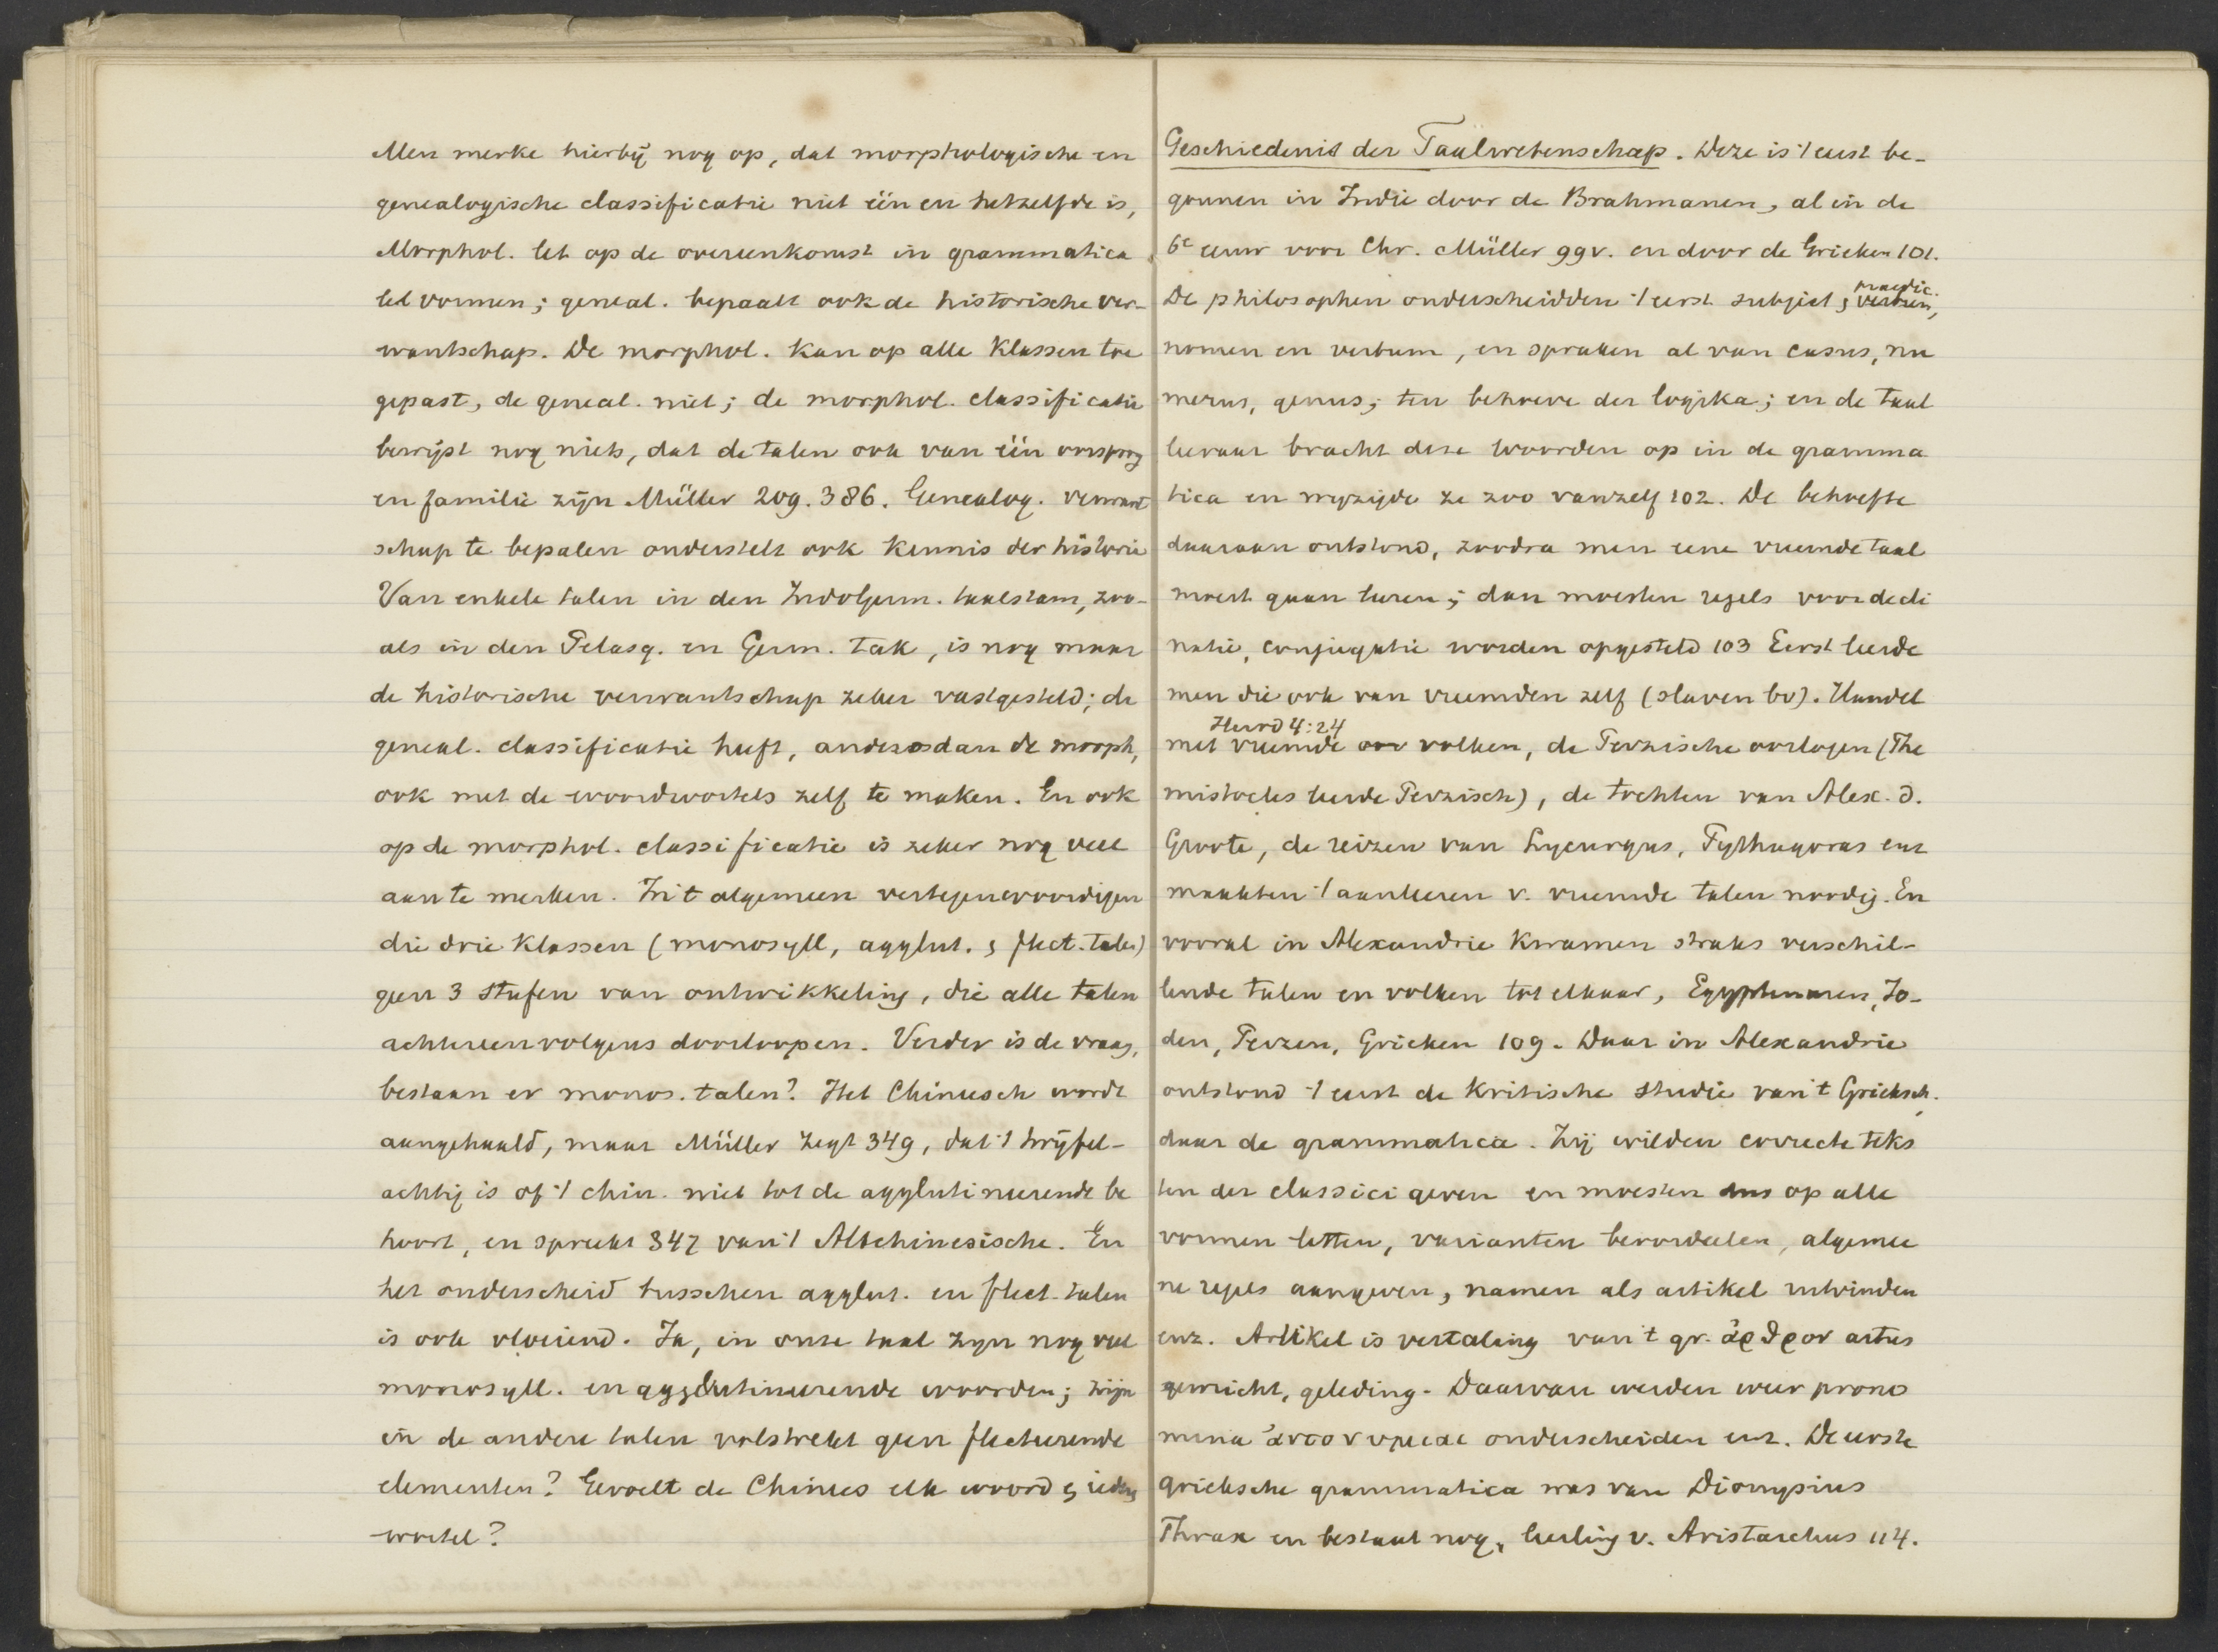 Men merke hierbij nog op, dat morphologische en
genealogische classificatie niet één en hetzelfde is,
Morphol. let op de overeenkomst in grammatica
let vormen; geneal. bepaalt ook de historische ver-
wantschap. De morphol. kan op alle klassen toe
gepast, de geneal. niet; de morphol. classificatie
bewijst nog niets, dat de talen ook van één oorsprong
en familie zijn Müller 209. 386. Genealog. verwant
schap te bepalen onderstelt ook kennis der historie
Van enkele talen in den Indogerm. taalstam, zoo-
als in den Pelasg. en Germ. tak, is nog maar
de historische verwantschap zeker vastgesteld; de
geneal. classificatie heeft, anders dan de morph,
ook met de woordwortels zelf te maken. En ook
op de morphol. classificatie is zeker nog veel
aan te merken. In 't algemeen vertegenwoordigen
die drie klassen (monosyll, agglut. & flect. talen)
geen 3 stufen van ontwikkeling, die alle talen
achtereenvolgens doorloopen. Verder is de vraag,
bestaan er monos. talen? Het Chineesch wordt
aangehaald, maar Müller zegt 349, dat 't twijfel-
achtig is of 't chin. niet tot de agglutineerende be
hoort, en spreekt 347 van 't Altchinesische. En
het onderscheid tusschen agglut. en flect. talen
is ook vloeiend. Ja, in onze taal zijn nog veel
monosyll. en agglutineerende woorden; zijn
in de andere talen volstrekt geen flecteerende
elementen? Gevoelt de Chinees elk woord & iedere
wortel?
Geschiedenis der Taalwetenschap. Deze is 't eerst be-
gonnen in Indie door de Brahmanen, al in de
6e eeuw voor Chr. Müller 99v. en door de Grieken 101.
praedic.
De philosophen onderscheidden 't eerst subject &
nomen en verbum, en spraken al van casus, nu
merus, genus; ten behoeve der logika; en de taal
leeraar bracht deze woorden op in de gramma
tica en wijzigde ze zoo vanzelf 102. De behoefte
daaraan ontstond, zoodra men eene vreemde taal
moest gaan leeren; dan moesten regels voor decli
natie, conjugatie worden opgesteld 103 Eerst leerde
men die ook van vreemden zelf (slaven bv). Handel
Herod 4:24
met vreemde volken, de Perzische oorlogen (The
mistocles leerde Perzisch), de tochten van Alex. d.
Groote, de reizen van Lycurgus, Pythagoras enz
maakten 't aanleeren v. vreemde talen noodig. En
vooral in Alexandrie kwamen straks verschil-
lende talen en volken tot elkaar, Egyptenaren, Jo-
den, Perzen, Grieken 109. Daar in Alexandrie
ontstond 't eerst de kritische studie van 't Grieksch.
daar de grammatica. Zij wilden correcte teks
ten der classici geven en moesten dus op alle
vormen letten, varianten beoordeelen, algemee
ne regels aangeven, namen als artikel uitvinden
enz. Artikel is vertaling van 't gr. ἀρθρον artus
gewricht, geleding. Daarvan werden weer prono
mina ἀντονυμιαι onderscheiden enz. De eerste
grieksche grammatica was van Dionysius
Thrax en bestaat nog, leerling v. Aristarchus 114.